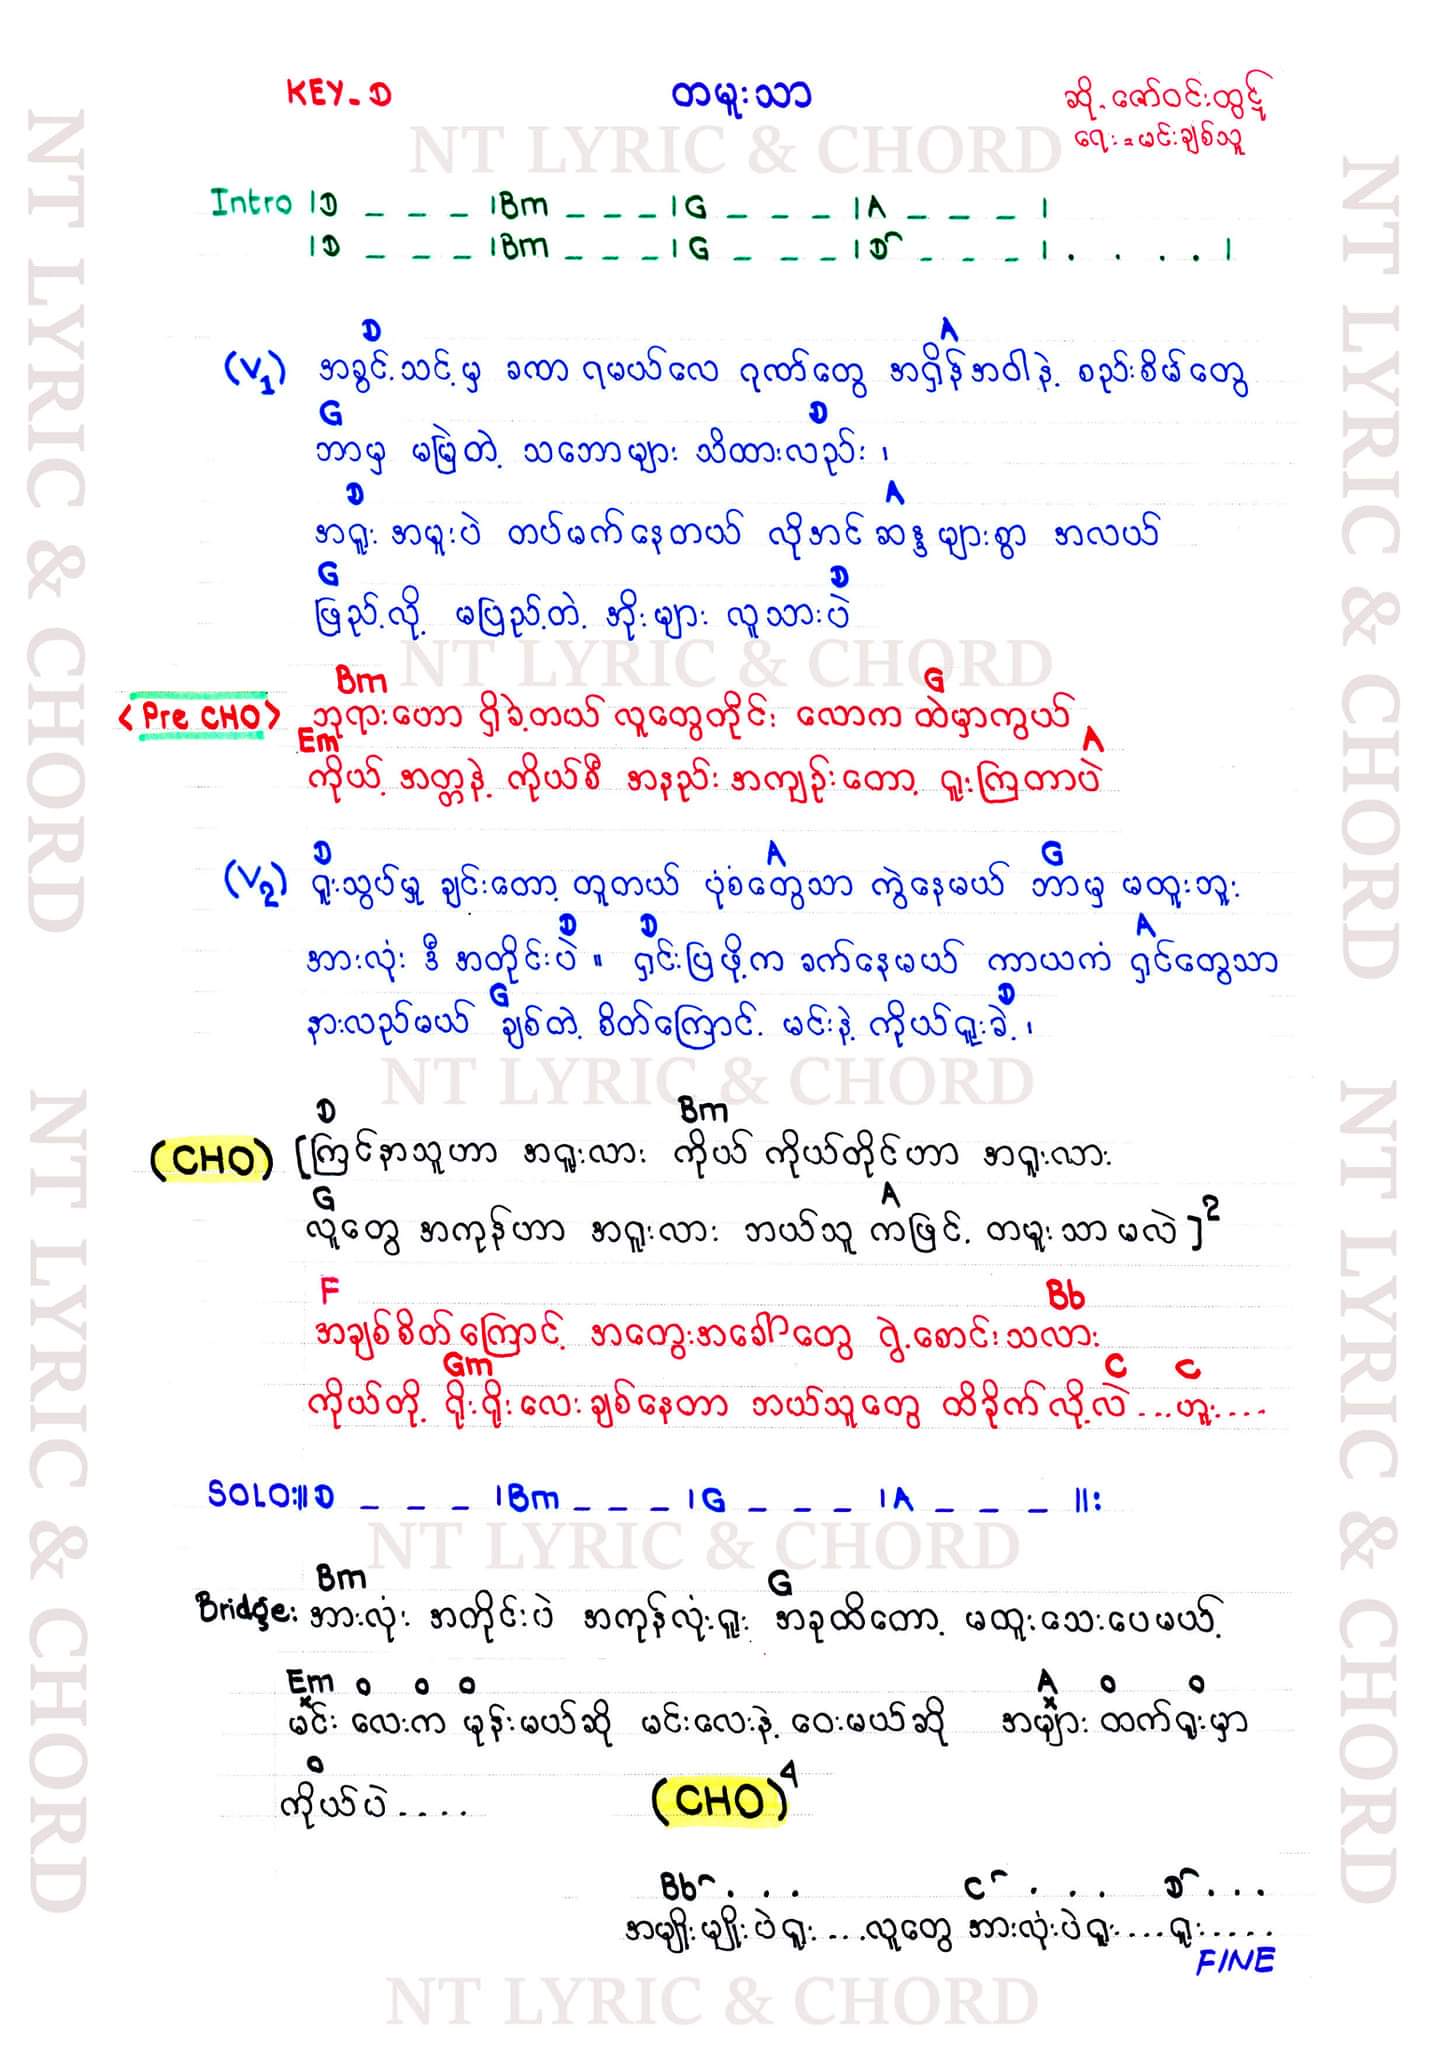 KEY-D
တမူးသာ
ဆို. ဇော်ဝင်းထွဋ်
ရေး = မင်းချစ်သူ
NT LYRIC & CHORD
Intro |D _ _ _ |Bm _ _ _ |G _ _ _ |A _ _ _ |
|D _ _ _ |Bm _ _ _ |G _ _ _ |D _ _ _ | . . . . |
D A
(V1) အခွင့်သင့်မှ ခဏ ရမယ်လေ ဂုဏ်တွေ အရှိန်အဝါနဲ့ စည်းစိမ်တွေ
G D
ဘာမှ မမြဲတဲ့ သဘောများ သိထားလည်း ၊
D A
အရူး အမူးပဲ တပ်မက်နေတယ် လိုအင်ဆန္ဒများစွာ အလယ်
G D
ဖြည့်လို့ မပြည့်တဲ့ အိုးများ လူသားပဲ
NT LYRIC & CHORD
Bm G
<Pre CHO> ဘုရားဟော ရှိခဲ့တယ် လူတွေတိုင်း လောက ထဲမှာကွယ်
Em A
ကိုယ့် အတ္တနဲ့ ကိုယ်စီ အနည်းအကျဉ်းတော့ ရူးကြတာပဲ
D A G
(V2) ရူးသွပ်မှု ချင်းတော့ တူတယ် ပုံစံတွေသာ ကွဲနေမယ် ဘာမှ မထူးဘူး
D D A
အားလုံး ဒီ အတိုင်းပဲ ။ ရှင်းပြဖို့က ခက်နေမယ် ကာယကံ ရှင်တွေသာ
G D
နားလည်မယ် ချစ်တဲ့ စိတ်ကြောင့် မင်းနဲ့ ကိုယ်ရူးခဲ့ ၊
NT LYRIC & CHORD
D Bm
(CHO) [ကြင်နာသူဟာ အရူးလား ကိုယ် ကိုယ်တိုင်ဟာ အရူးလား
G A
လူတွေ အကုန်ဟာ အရူးလား ဘယ်သူ ကဖြင့် တမူးသာမလဲ ]2
F Bb
အချစ်စိတ်ကြောင့် အတွေးအခေါ်တွေ ရွဲ့စောင်းသလား
Gm C C
ကိုယ်တို့ ရိုးရိုးလေးချစ်နေတာ ဘယ်သူတွေ ထိခိုက်လို့လဲ ...ဟူး....
SOLO:||D _ _ _ |Bm _ _ _ |G _ _ _ |A _ _ _ ||:
NT LYRIC & CHORD
Bm G
Bridge: အားလုံး အတိုင်းပဲ အကုန်လုံးရူး အခုထိတော့ မထူးသေးပေမယ့်
Em o o o A o o
မင်း လေးက မုန်းမယ်ဆို မင်းလေးနဲ့ ဝေးမယ်ဆို အများ ထက်ရူးမှာ
o
ကိုယ်ပဲ....
(CHO)4
Bb . . . C . . . D . . .
အမျိုးမျိုးပဲရူး ....လူတွေ အားလုံးပဲရူး....ရူး.....
FINE
NT LYRIC & CHORD
NT LYRIC & CHORD
NT LYRIC & CHORD
NT LYRIC & CHORD
NT LYRIC & CHORD